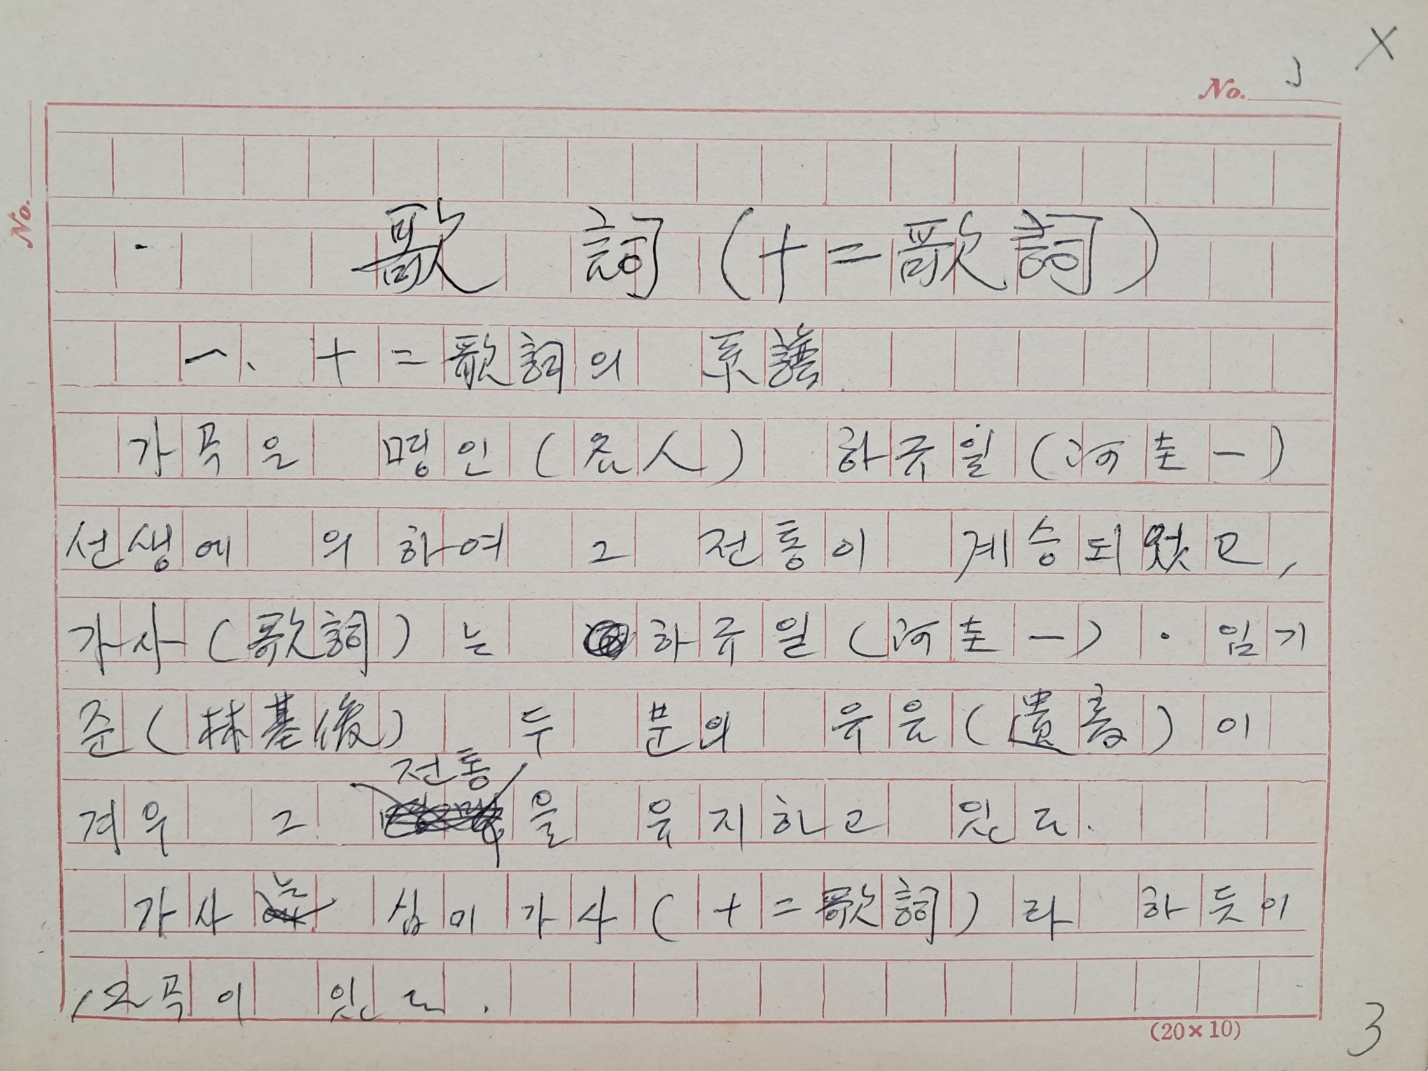 X
No. 3
No.
歌 詞 (十二歌詞)
一. 十二歌詞의 系譜
가곡은 명인(名人) 하규일(河圭一)
선생에 의하여 그 전통이 계승되었고,
가사(歌詞)는 하규일(河圭一)·임기
준(林基俊) 두 분의 유음(遺音)이
전통
겨우 그 을 유지하고 있다.
가사는 십이가사(十二歌詞)라 하듯이
12곡이 있다.
(20×10)
3